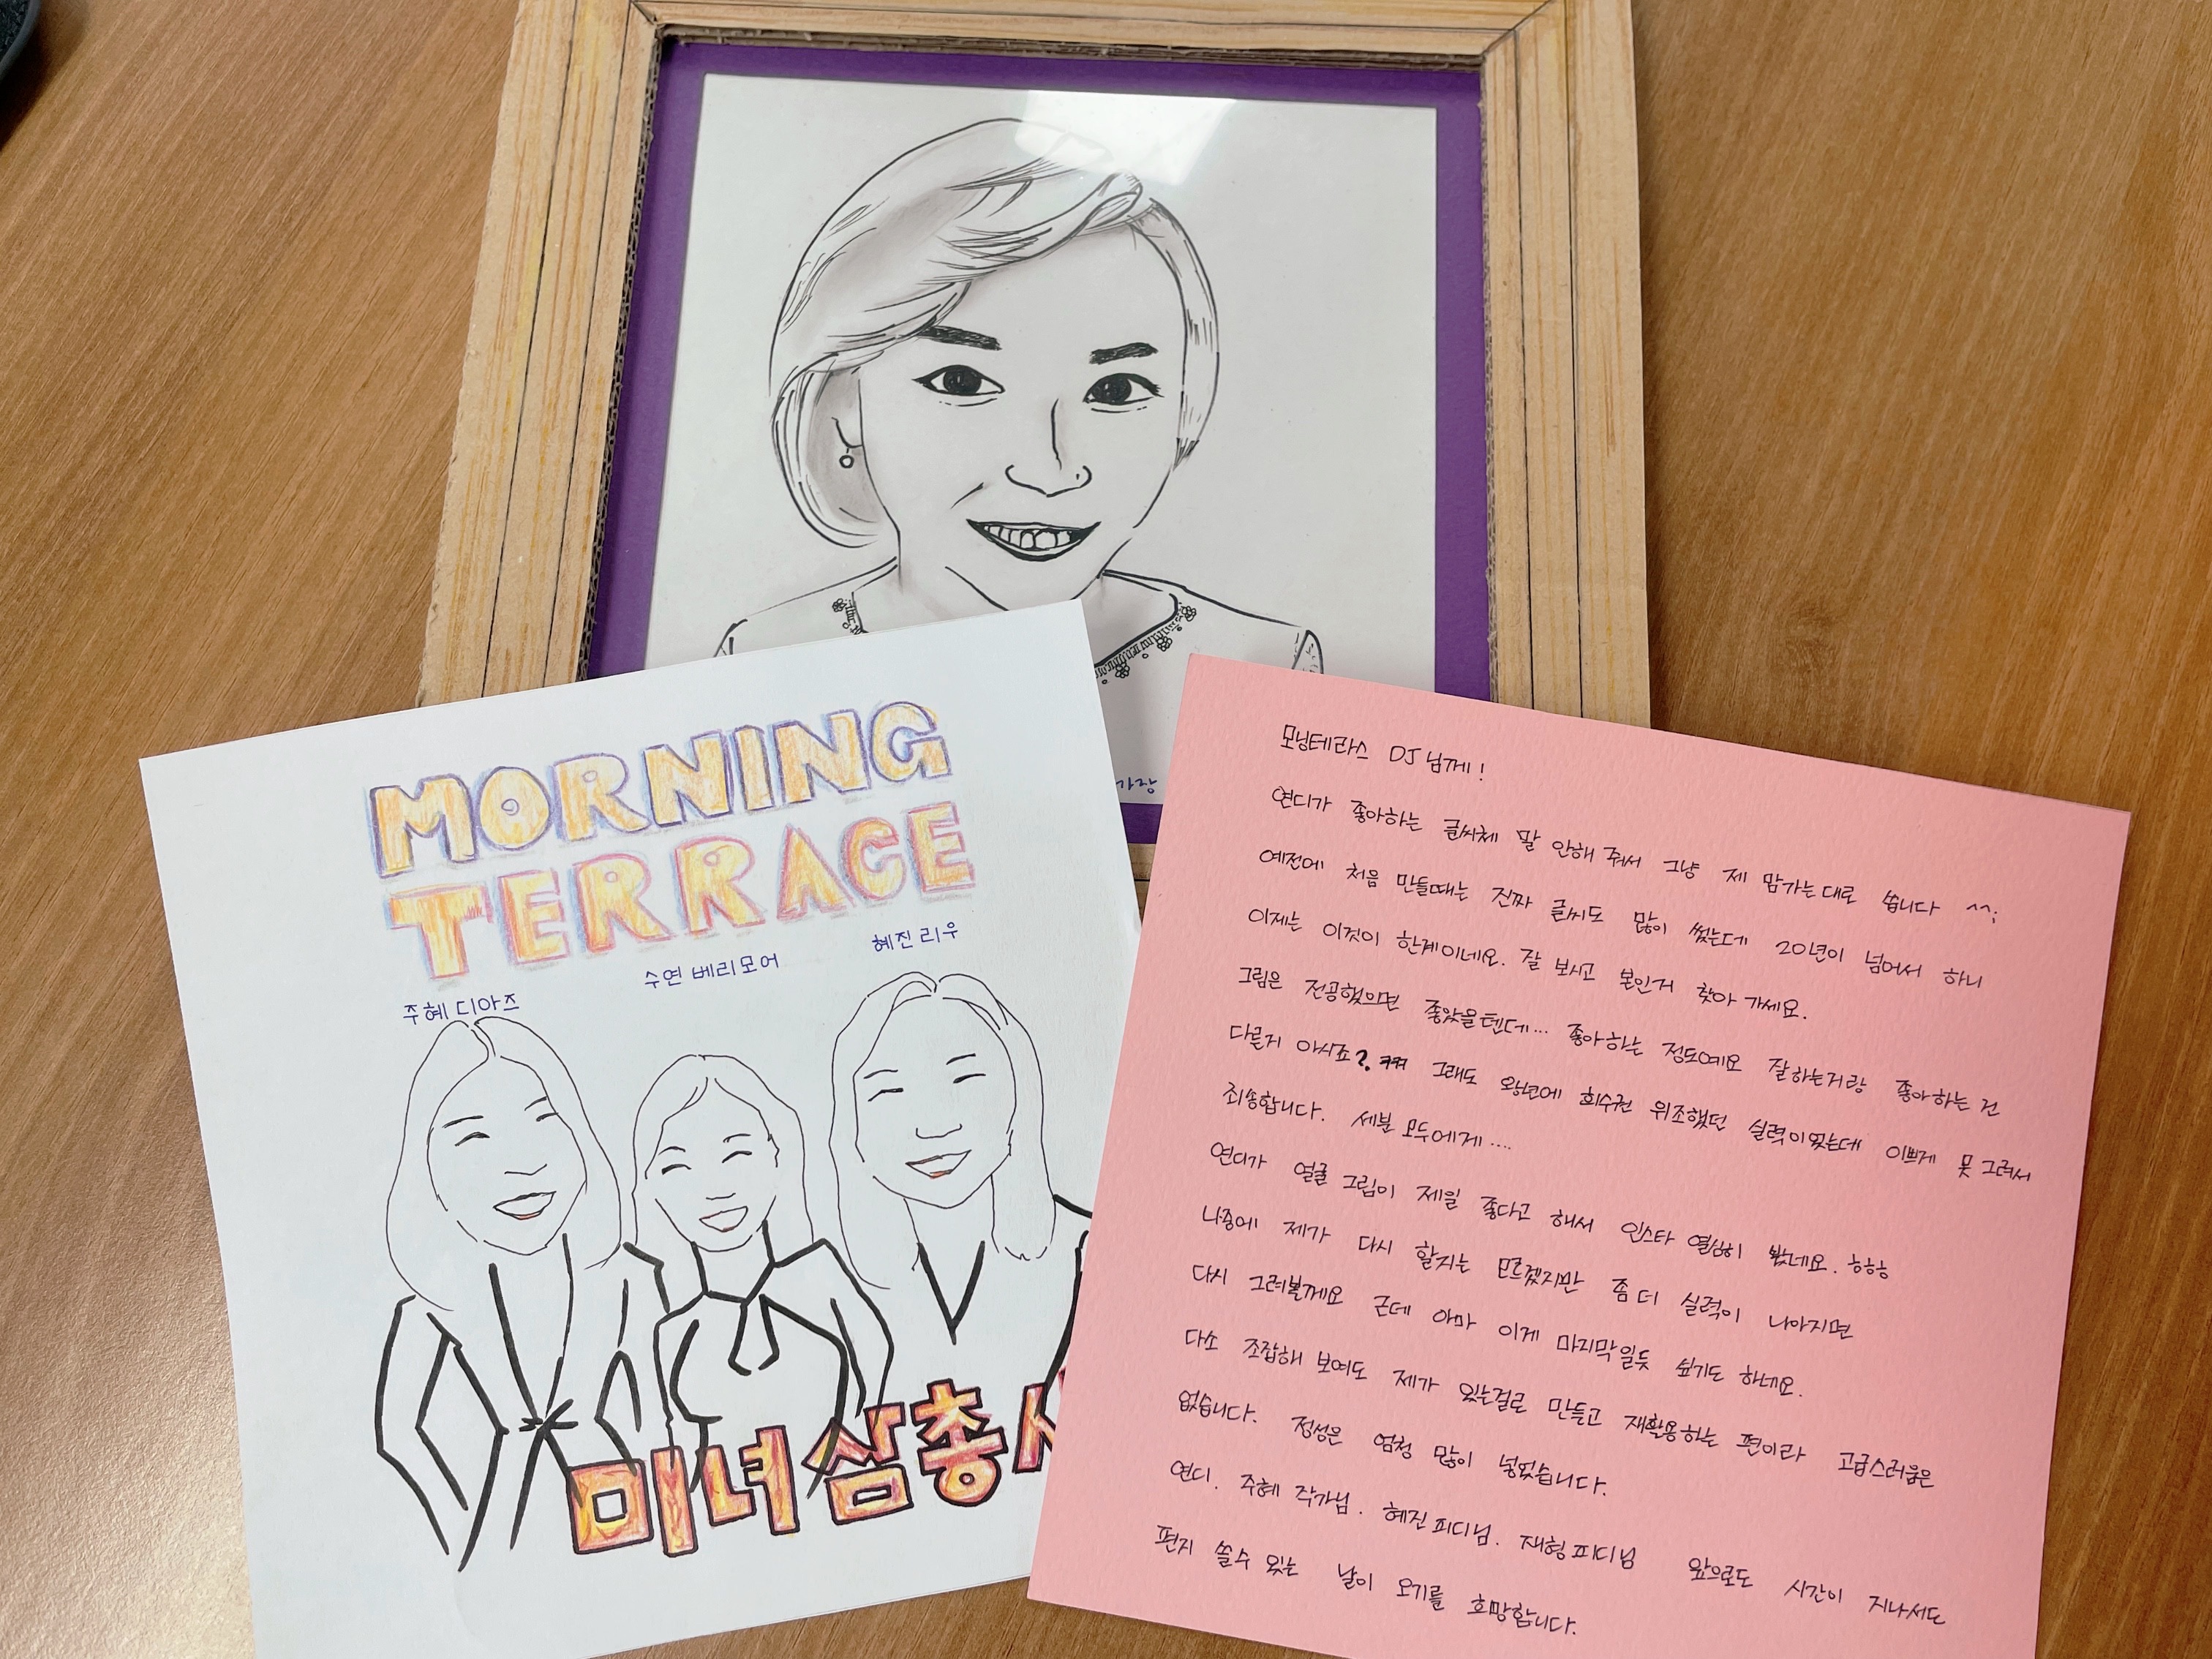 가장
MORNING
TERRACE
주혜 디아즈
수연 베리모어
혜진 리우
미녀 삼총
모닝테라스 DJ님께!
연디가 좋아하는 글씨체 말 안해 줘서 그냥 제 맘가는대로 씁니다 ^^;
예전에 처음 만들때는 진짜 글씨도 많이 썼는데 20년이 넘어서 하니
이제는 이것이 한계이네요. 잘 보시고 본인거 찾아 가세요.
그림은 전공했으면 좋았을텐데... 좋아하는 정도예요 잘하는거랑 좋아하는건
다른거 아시죠? ㅋㅋ 그래도 왕년에 회수권 위조했던 실력이있는데 이쁘게 못 그려서
죄송합니다. 세분 모두에게....
연디가 얼굴 그림이 제일 좋다고 해서 인스타 열심히 봤네요. ㅎㅎㅎ
나중에 제가 다시 할지는 모르겠지만 좀 더 실력이 나아지면
다시 그려볼께요 근데 아마 이게 마지막일듯 싶기도 하네요.
다소 조잡해 보여도 제가 있는걸로 만들고 재활용하는 편이라 고급스러움은
없습니다. 정성은 엄청 많이 넣었습니다.
연디. 주혜 작가님. 혜진피디님. 재형피디님 앞으로도 시간이 지나서도
편지 쓸수 있는 날이 오기를 희망합니다.